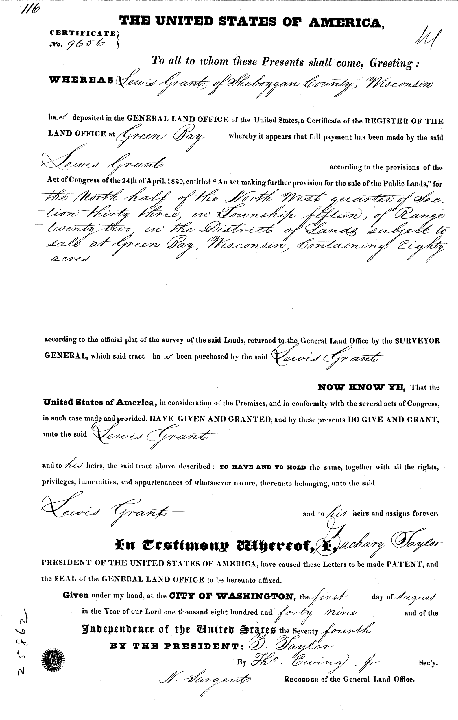 116
THE UNITED STATES OF AMERICA,
CERTIFICATE
No. 9656
To all to whom these Presents shall come, Greeting:
WHEREAS Lewis Grant, of Sheboygan County, Wisconsin
has deposited in the GENERAL LAND OFFICE of the United States, a Certificate of the REGISTER OF THE
LAND OFFICE at Green Bay whereby it appears that full payment has been made by the said
Lewis Grant according to the provisions of the
Act of Congress of the 24th of April, 1820, entitled "An act making further provision for the sale of the Public Lands," for
the North half of the North West quarter of Sec-
tion thirty three, in Township fifteen, of Range
twenty two, in the District of Lands subject to
sale at Green Bay, Wisconsin, Containing Eighty
acres
according to the official plat of the survey of the said Lands, returned to the General Land Office by the SURVEYOR
GENERAL, which said tract has been purchased by the said Lewis Grant
NOW KNOW YE, That the
United States of America, in consideration of the Premises, and in conformity with the several acts of Congress,
in such case made and provided, HAVE GIVEN AND GRANTED, and by these presents DO GIVE AND GRANT,
unto the said Lewis Grant
and to his heirs, the said tract above described: TO HAVE AND TO HOLD the same, together with all the rights,
privileges, immunities, and appurtenances of whatsoever nature, thereunto belonging, unto the said
Lewis Grant and to his heirs and assigns forever.
In Testimony Whereof, I, Zachary Taylor
PRESIDENT OF THE UNITED STATES OF AMERICA, have caused these Letters to be made PATENT, and
the SEAL of the GENERAL LAND OFFICE to be hereunto affixed.
Given under my hand, at the CITY OF WASHINGTON, the first day of August
in the Year of our Lord one thousand eight hundred and forty nine and of the
Independence of the United States the Seventy fourth
BY THE PRESIDENT: Z. Taylor
By Tho. Ewing Jr Sec'y.
N. Sargent RECORDER of the General Land Office.
25762